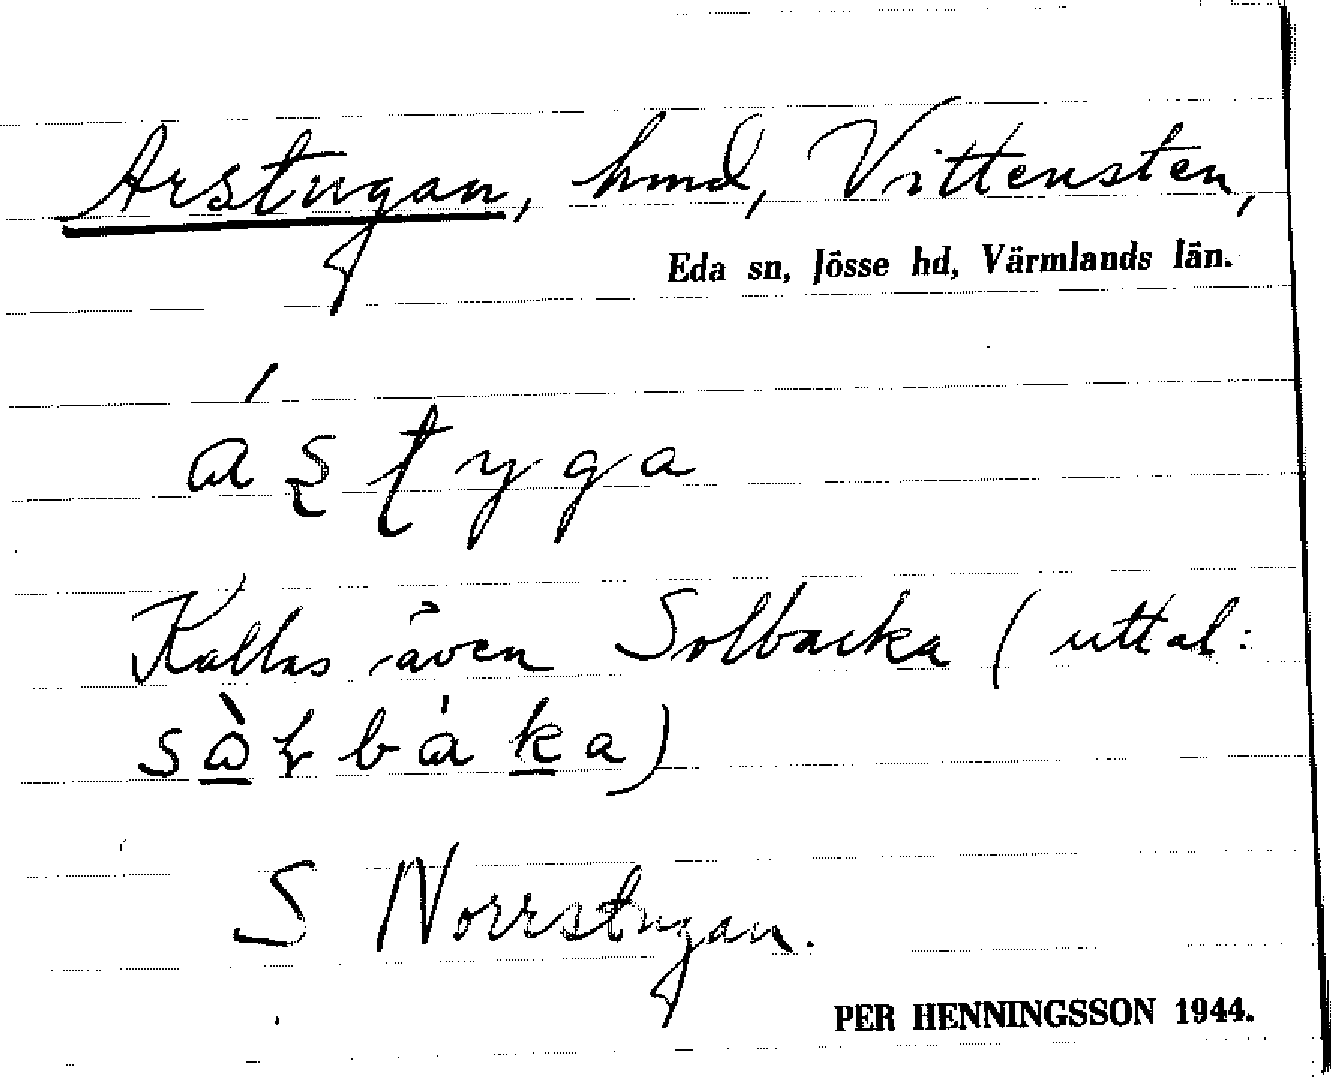 Arstugan, hmd, Vittensten,
Eda sn, Jösse hd, Värmlands län.
áʂʈyga
Kallas även Solbacka (uttal:
sɷ̀ɽbáka)
S Norrstugan.
PER HENNINGSSON 1944.